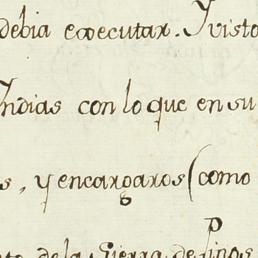 debia executar. Y visto
Indias con lo que en su
s, y encargaros (como
to de la Sierra de Pinos